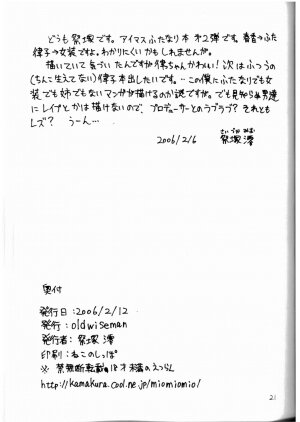 どうも祭塚です。アイマスふたなり本 第2弾です。春香→ふた
律子→女装ですよ。わかりにくいかもしれませんが。
描いていて気づいたんですが律ちゃんかわいい！次はふつうの
(ちんこ生えてない)律子本出したいです。…この僕にふたなりでも女
装でも姉でもないマンガが描けるのか謎ですが。でも見知らぬ男達
にレイプとかは描けないので、プロデューサーとのラブラブ？それとも
レズ？ うーん…
2006/2/6
祭塚 澪
奥付
発行日:2006/2/12
発行:oldwiseman
発行者:祭塚 澪
印刷:ねこのしっぽ
※禁無断転載。18才未満のえつらん
http://kamakura.cool.ne.jp/miomiomio/
21